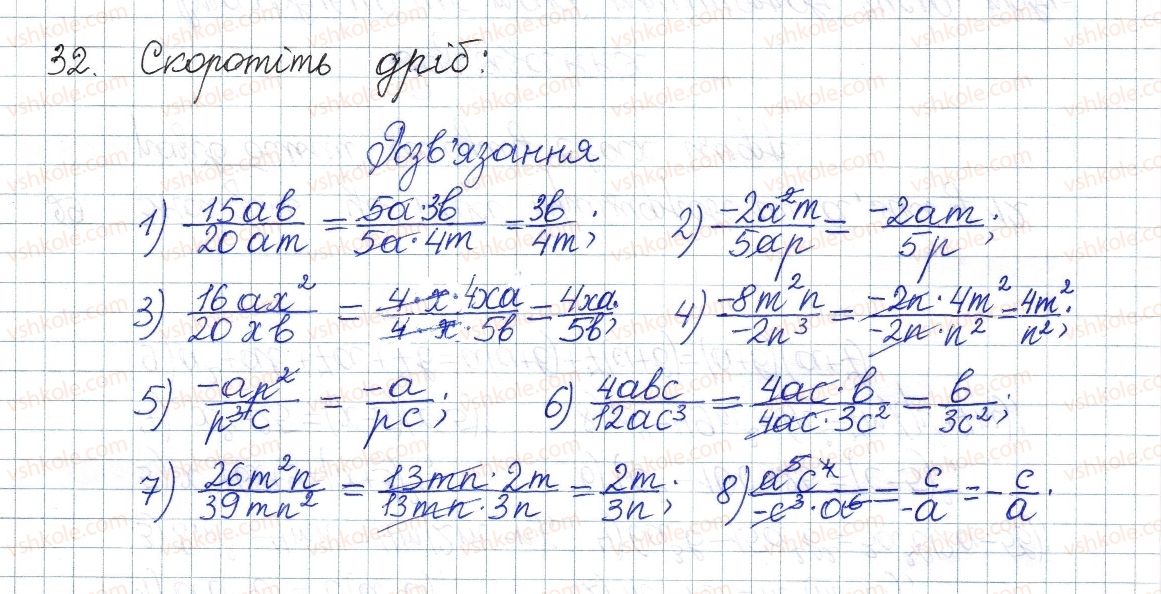 32. Скоротіть дріб:
Розв'язання
1) 15ab/20am = 5a·3b/5a·4m = 3b/4m; 2) -2a²m/5ap = -2am/5p;
3) 16ax²/20xb = 4·x·4xa/4·x·5b = 4xa/5b; 4) -8m²n/-2n³ = -2n·4m²/-2n·n² = 4m²/n²;
5) -ap²/p³c = -a/pc; 6) 4abc/12ac³ = 4ac·b/4ac·3c² = b/3c²;
7) 26m²n/39mn² = 13mn·2m/13mn·3n = 2m/3n; 8) a⁵c⁴/-c³·a⁶ = c/-a = -c/a.